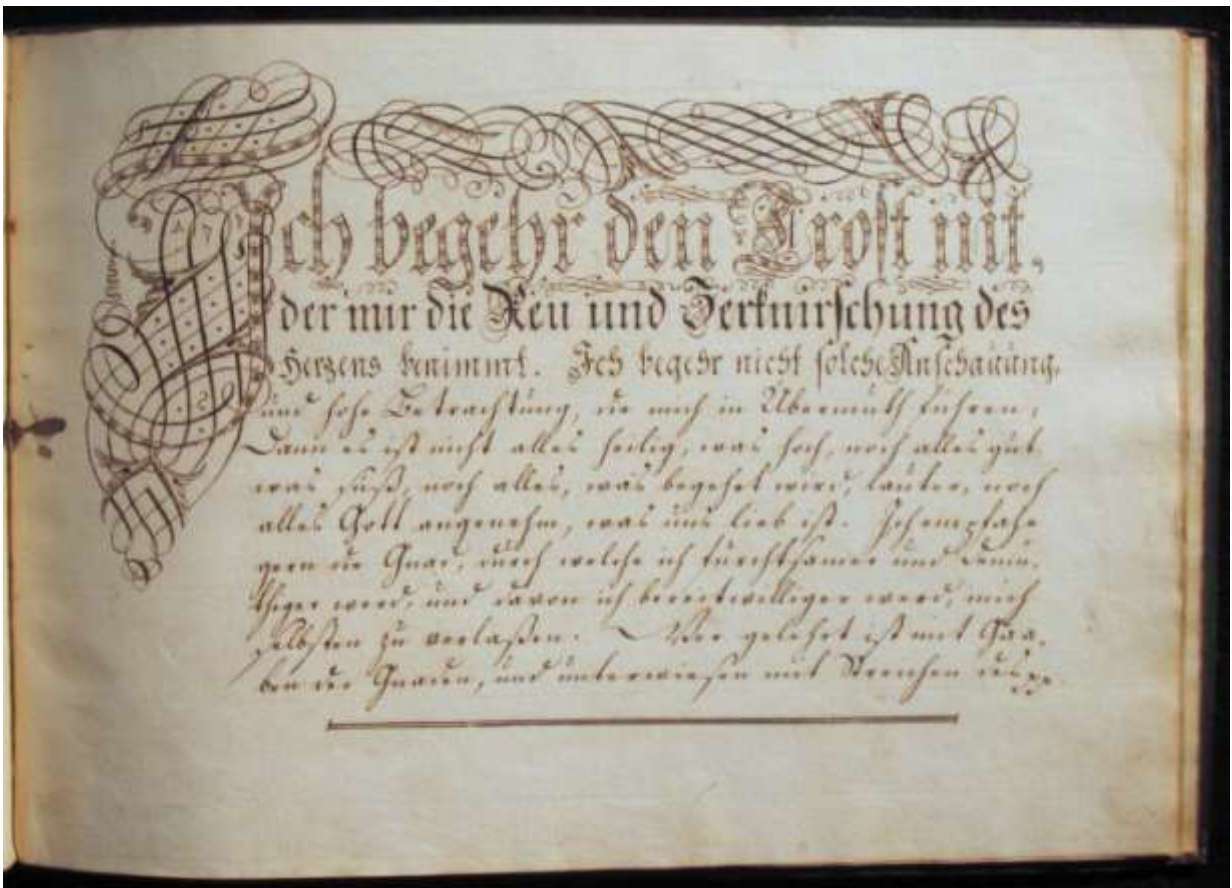 Ich begehr den Trost nit,
der mir die Reu und Zerknirschung des
Herzens benimmt. Ich begehr nicht solche Anschauung,
und hohe Betrachtung, die mich in Übermuth führen;
Dann es ist nicht alles heilig, was hoch, noch alles gut
was süß, noch alles, was begehrt wird, lauter, noch
alles Gott angenehm, was uns lieb ist. Ich empfahe
gern die Gnad, durch welche ich fürchtsamer und demü-
thiger werd, und davon ich bereitwilliger werd, mich
selbsten zu verlaßen. Wer gelehrt ist mit Gaa-
ben der Gnaden, und unterwiesen mit Streichen des